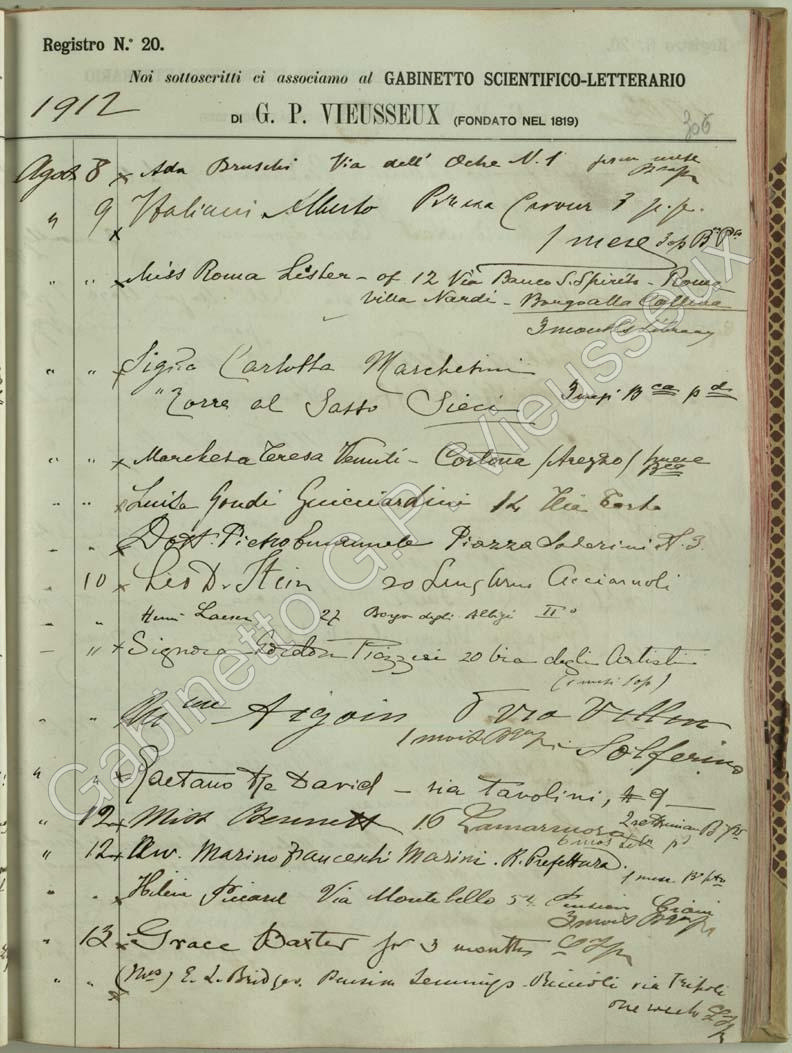 Registro N.° 20.
Noi sottoscritti ci associamo al GABINETTO SCIENTIFICO-LETTERARIO
1912
DI G. P. VIEUSSEUX (FONDATO NEL 1819)
306
Agos 8 x Ada Bruschi Via dell' Oche N. 1 mese
" 9 x Italiani Alberto Cavour 3 p. p.
1 mese
" " x Miss Roma Lister - of 12 Via Banco S. Spirito - Roma
Villa Nardi - Borgo alla Collina
3 months Library
" " x Sig.ra Carlotta Marchesini
" Torre al Sasso Sieci
" " x Marchesa Teresa Venuti - Cortona (Arezzo)
" " x Luisa Gondi Guicciardini 14 Via
" " x Dott. Pietro Emanuele Piazza Soderini N. 3
" 10 x Leo D. Stein 20 Lung'Arno Acciaiuoli
" 27 Borgo degli Albizi II°
" " x Signora Gordon Piazzesi 20 Via degli Artisti
" " Mme Aigoin Via
1 mois Solferino
" " x Gaetano De David - via Tavolini, # 9 -
" 12 x Miss Bennett 16 Lamarmora
" 12 x Avv. Marino Franceschi Marini. R. Prefettura.
1 mese
" " Hélène Picard Via Montebello 54 Pension
3 mois
" 13 x Grace Baxter for 3 months
" " x (Mrs) E. L. Bridges Pension Jennings-Riccioli via Tripoli
one week
Gabinetto G.P. Vieusseux